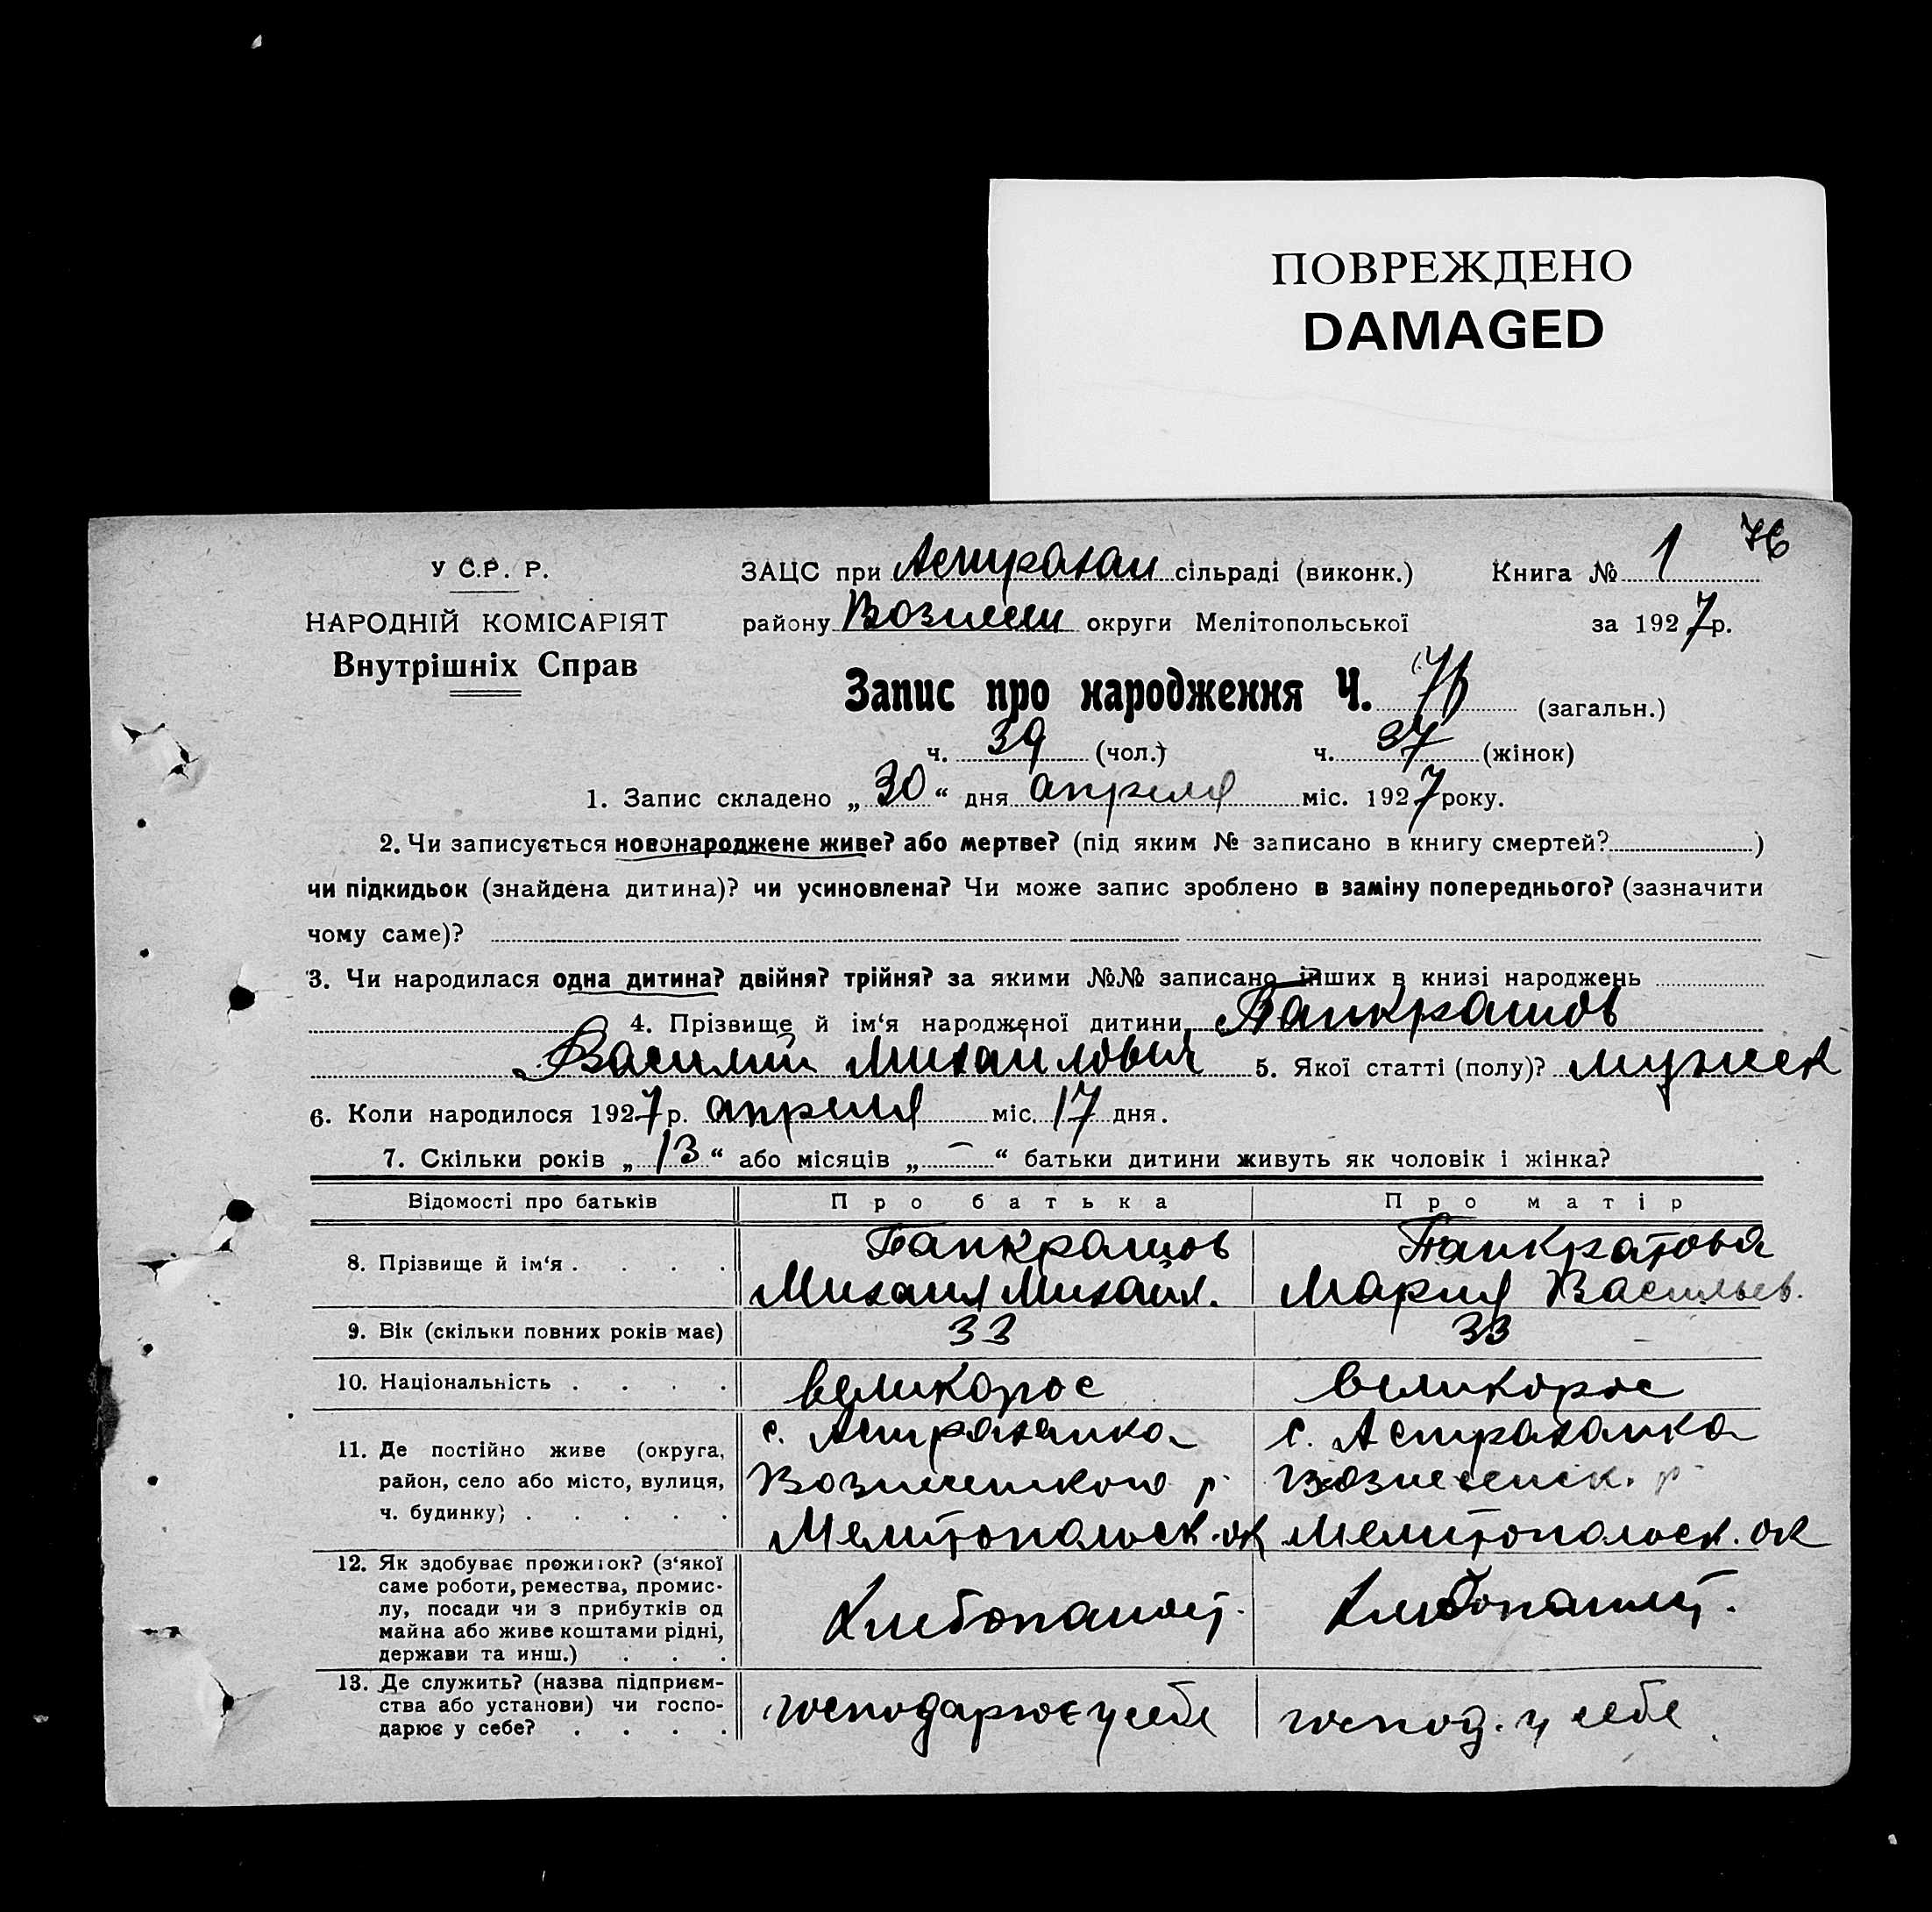 ПОВРЕЖДЕНО
DAMAGED
76
У С.Р. Р.
ЗАЦС при Астрахан сільраді (виконк.) Книга № 1
НАРОДНІЙ КОМІСАРІЯТ
району Вознесен округи Мелітопольської за 1927 р.
Внутрішніх Справ
Запис про народження Ч. 76 (загальн.)
ч. 39 (чол.) ч. 37 (жінок)
1. Запис складено „ 30 “ дня апреля міс. 1927 року.
2. Чи записується новонароджене живе? або мертве? (під яким № записано в книгу смертей? )
чи підкидьок (знайдена дитина)? чи усиновлена? Чи може запис зроблено в заміну попереднього? (зазначити
чому саме)?
3. Чи народилася одна дитина? двійня? трійня? за якими №№ записано інших в книзі народжень
4. Прізвище й ім‘я народженої дитини Панкратов
Василий Михаилович 5. Якої статті (полу)? мужеск
6. Коли народилося 1927 р. апреля міс. 17 дня.
7. Скільки років „ 13 “ або місяців „ – “ батьки дитини живуть як чоловік і жінка?
Відомості про батьків Про батька Про матір
8. Прізвище й ім‘я . . . . Панкратов Михаил Михайл. Панкратова Мария Васильев.
9. Вік (скільки повних років має) 33 33
10. Національність . . . . великорос великорос
11. Де постійно живе (округа, с. Астраханка с. Астраханка
район, село або місто, вулиця, Вознесенкого р. Вознесенск. р.
ч. будинку) . . . . . Мелитопольск. ок Мелитопольск. ок
12. Як здобуває прожиток? (з‘якої
саме роботи, ремества, промис-
лу, посади чи з прибутків од Хлебопашет. Хлебопашет.
майна або живе коштами рідні,
держави та инш.) . . .
13. Де служить? (назва підприєм-
ства або установи) чи госпо- господарює у себе господ. у себе
дарює у себе? . . . .